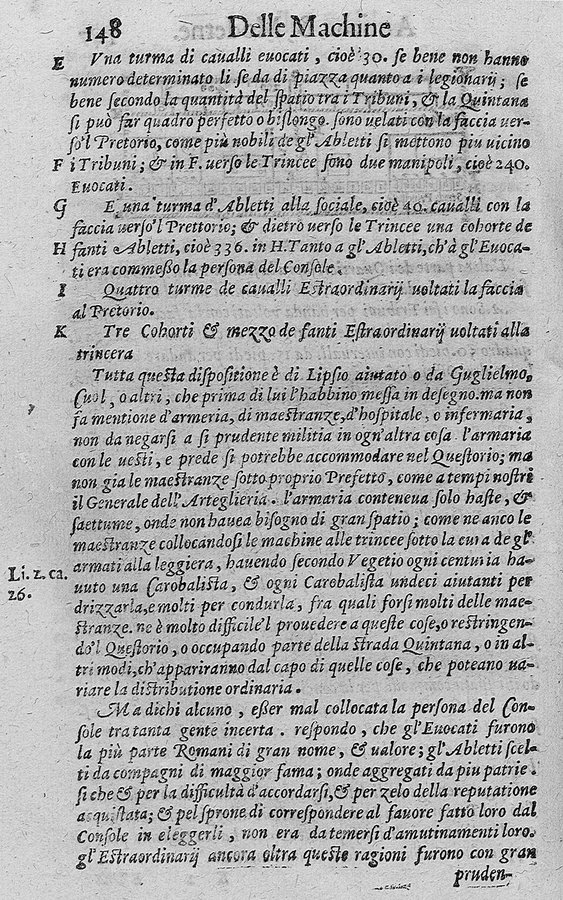 148 Delle Machine
E Vna turma di caualli euocati, cioè 30. se bene non hanno
numero determinato li se da di piazza quanto a i legionarij; se
bene secondo la quantità del spatio tra i Tribuni, & la Quintana
si può far quadro perfetto o bislongo. sono uelati con la faccia uer-
so'l Pretorio, come più nobili de gl'Abletti si mettono piu uicino
F i Tribuni; & in F. verso le Trincee sono due manipoli, cioè 240.
Euocati.
G E una turma d'Abletti alla sociale, cioè 40. caualli con la
faccia uerso'l Prettorio; & dietro uerso le Trincee una cohorte de
H fanti Abletti, cioè 336. in H. Tanto a gl'Abletti, ch'à gl'Euoca-
ti era commesso la persona del Console.
I Quattro turme de caualli Estraordinarij uoltati la faccia
al Pretorio.
K Tre Cohorti & mezzo de fanti Estraordinarij uoltati alla
trincera
Tutta questa dispositione è di Lipsio aiutato o da Guglielmo,
Cuol, o altri, che prima di lui l'habbino messa in desegno. ma non
fa mentione d'armeria, di maestranze, d'hospitale, o infermaria,
non da negarsi a si prudente militia in ogn'altra cosa l'armaria
con le uesti, e prede si potrebbe accommodare nel Questorio; ma
non gia le maestranze sotto proprio Prefetto, come a tempi nostri
il Generale dell'Arteglieria. l'armaria conteneua solo haste, &
saettume, onde non hauea bisogno di gran spatio; come ne anco le
maestranze collocandosi le machine alle trincee sotto la cura de gl'
armati alla leggiera, hauendo secondo Vegetio ogni centuria ha-
Li. 2. ca.
26.
uuto una Carobalista, & ogni Carobalista undeci aiutanti per
drizzarla, e molti per condurla, fra quali forsi molti delle mae-
stranze. ne è molto difficile'l prouedere a queste cose, o restringen-
do'l Questorio, o occupando parte della strada Quintana, o in al-
tri modi, ch'appariranno dal capo di quelle cose, che poteano ua-
riare la distributione ordinaria.
Ma dichi alcuno, esser mal collocata la persona del Con-
sole tra tanta gente incerta. respondo, che gl'Euocati furono
la più parte Romani di gran nome, & ualore; gl'Abletti scel-
ti da compagni di maggior fama; onde aggregati da piu patrie.
si che & per la difficultà d'accordarsi, & per zelo della reputatione
acquistata; & pel sprone di correspondere al fauore fatto loro dal
Console in eleggerli, non era da temersi d'amutinamenti loro.
gl'Estraordinarij ancora oltra queste ragioni furono con gran
pruden-